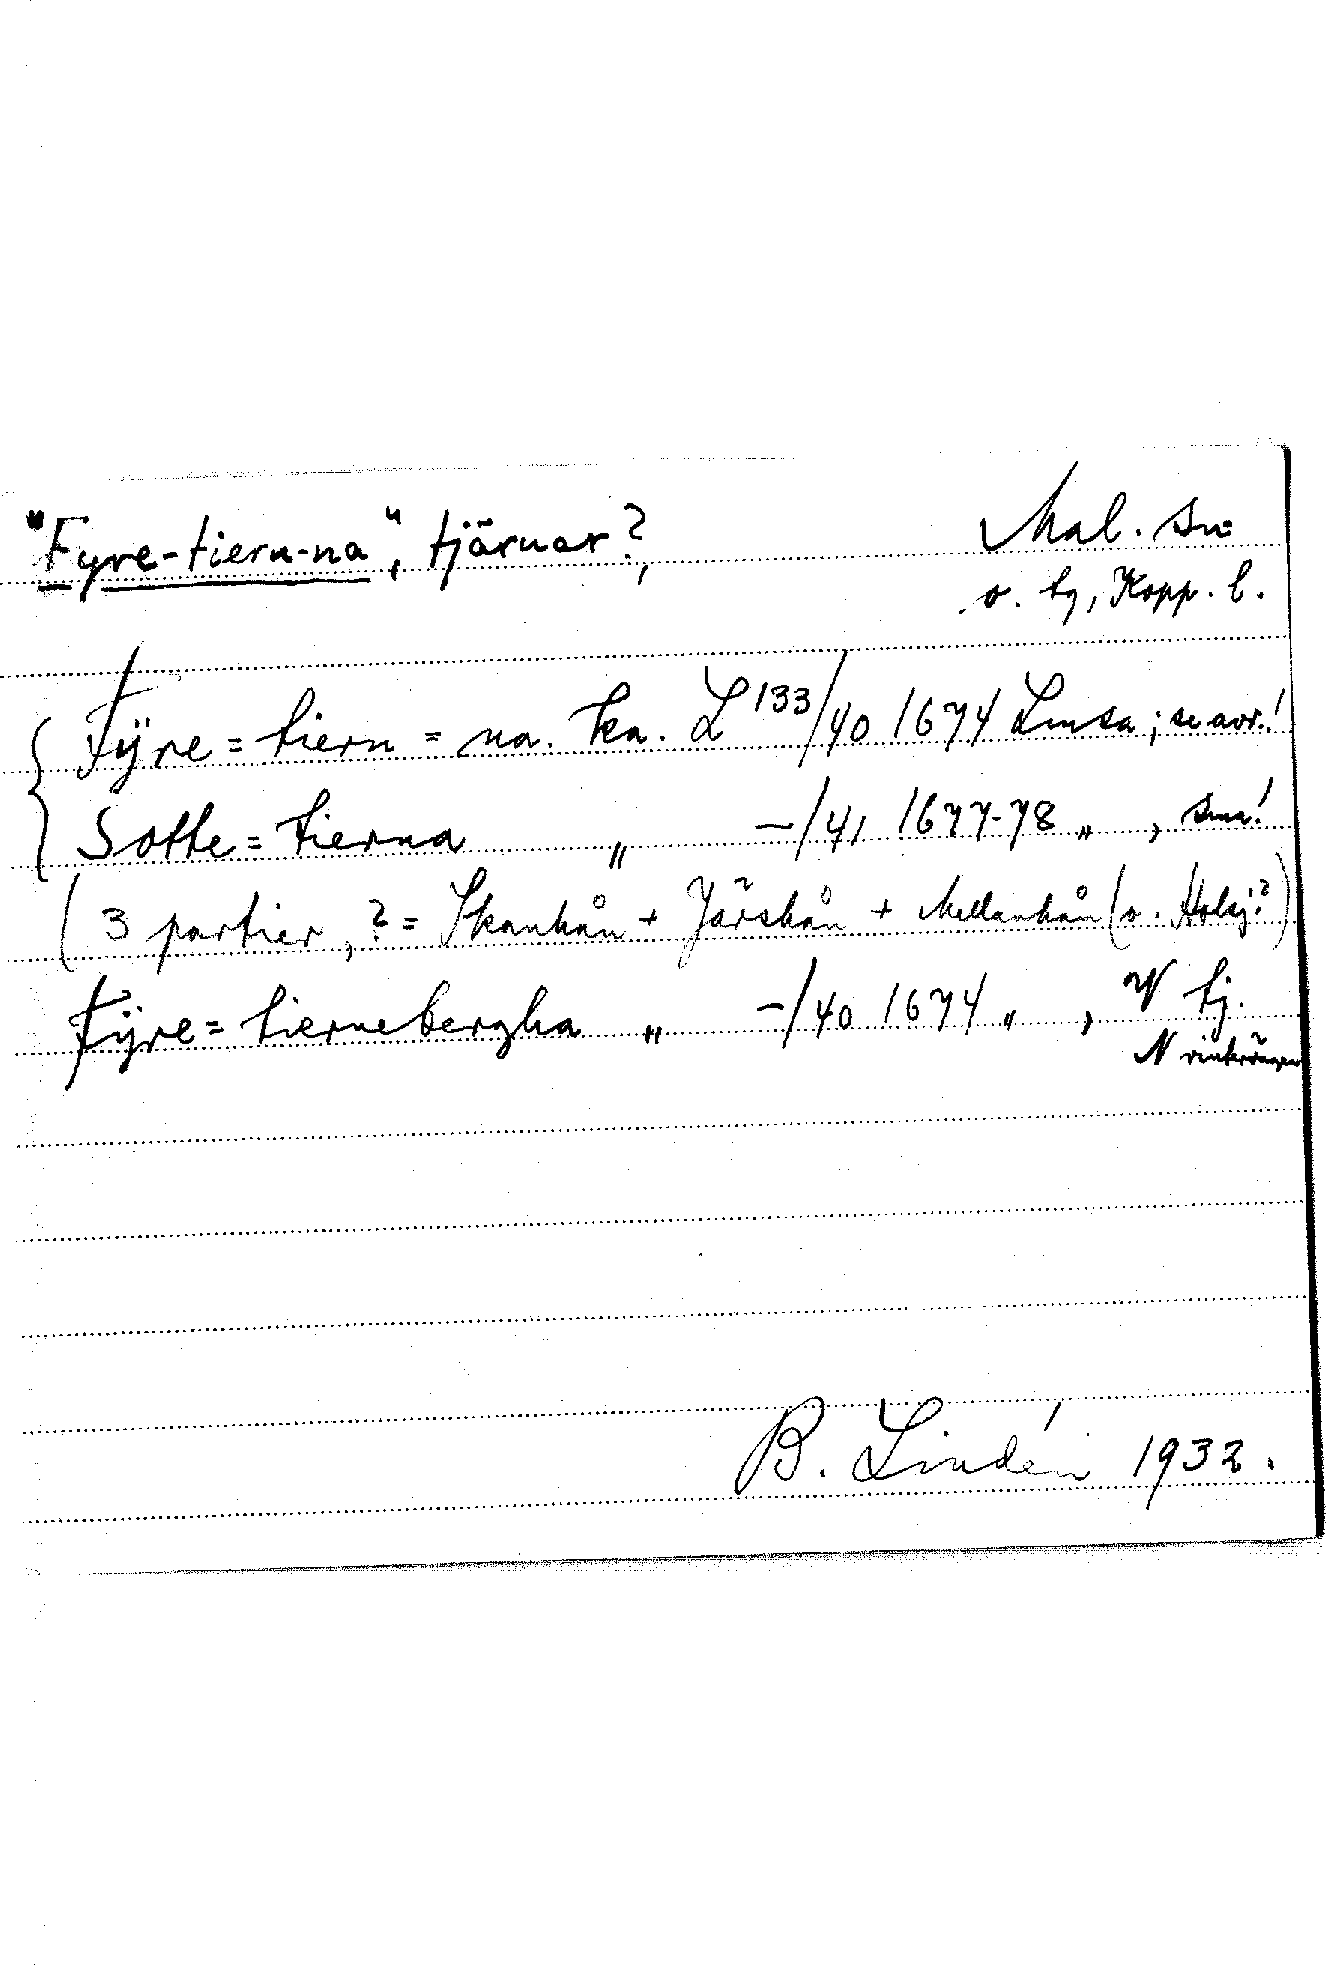 "Fyre-tiern-na", tjärnar?, Mal. sn
o. tg, Kopp. l.
Fÿre=tiern=na. ka. L 133/40 1674 Lmsa; se avr.!
Sotte=tierna " —/41 1677-78 " , sms!
(3 partier, ?= Skanhån + Järshån + Mellanhån (o. Holsj?)
Fÿre=tiernebergha " —/40 1674 " , V tj.
N vintervägen
B. Lindén 1932.